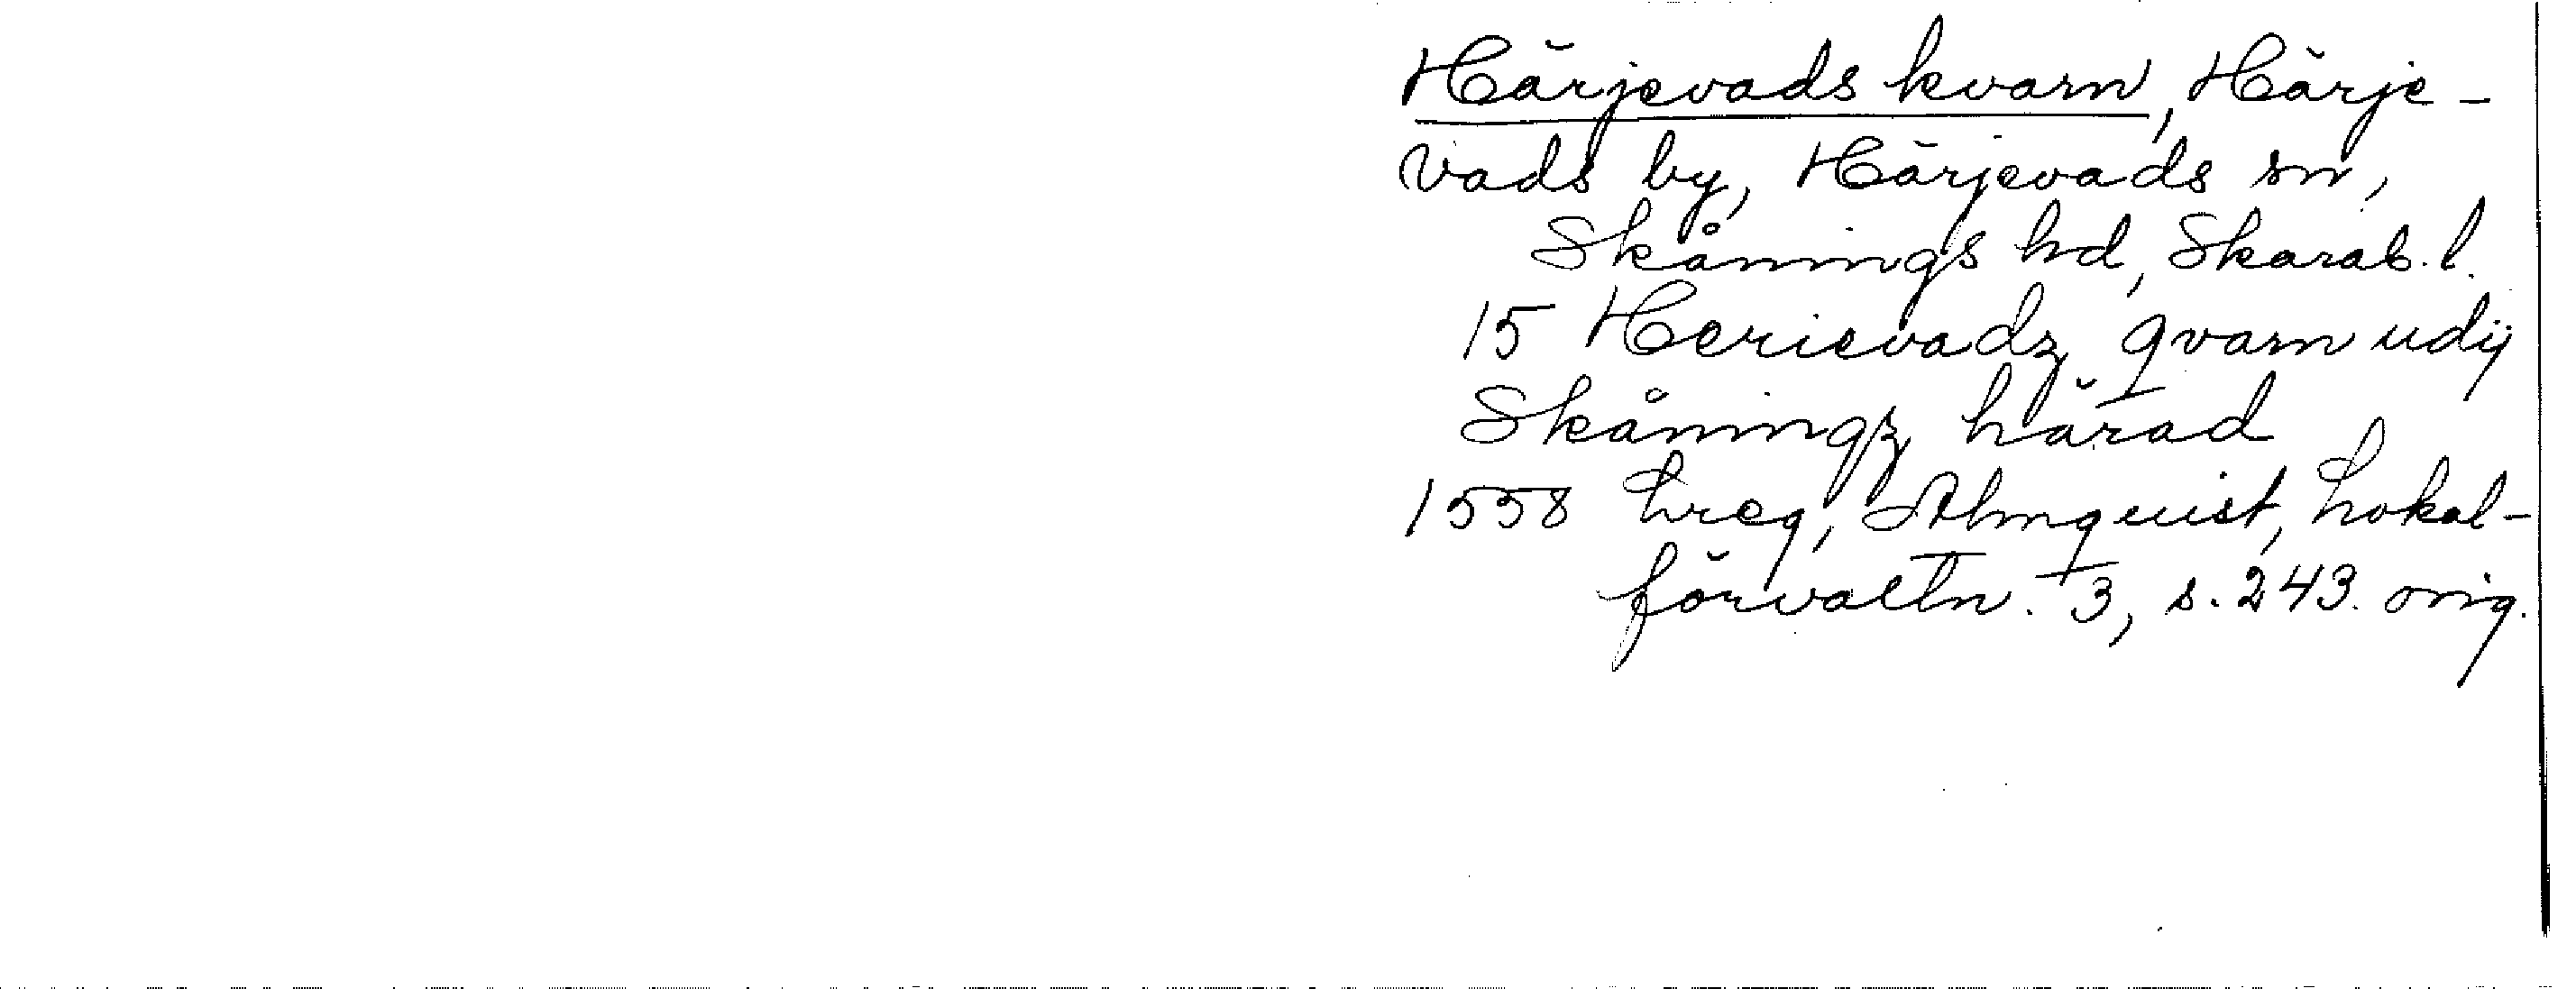 Härjevads kvarn, Härje-
vads by, Härjevads sn,
Skånings hd, Skarab. l.
15 Herievadz qvarn udij
Skåningz härad
1558 Lreg, Almquist, Lokal-
förvaltn. 3, s. 243. orig.